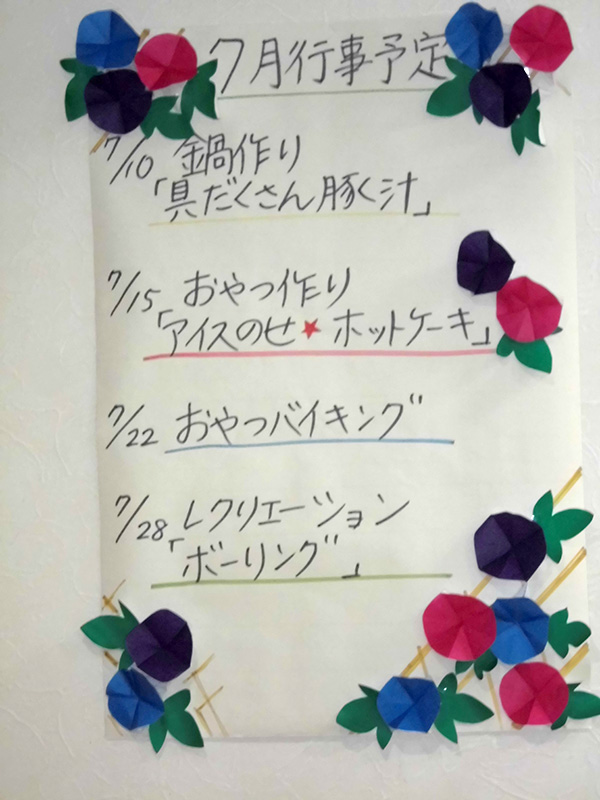 7月行事予定
7/10 鍋作り
「具だくさん豚く汁」
7/15 おやつ作り
「アイスのせ★ホットケーキ」
7/22 おやつバイキング
7/28 レクリエーション
「ボーリング」